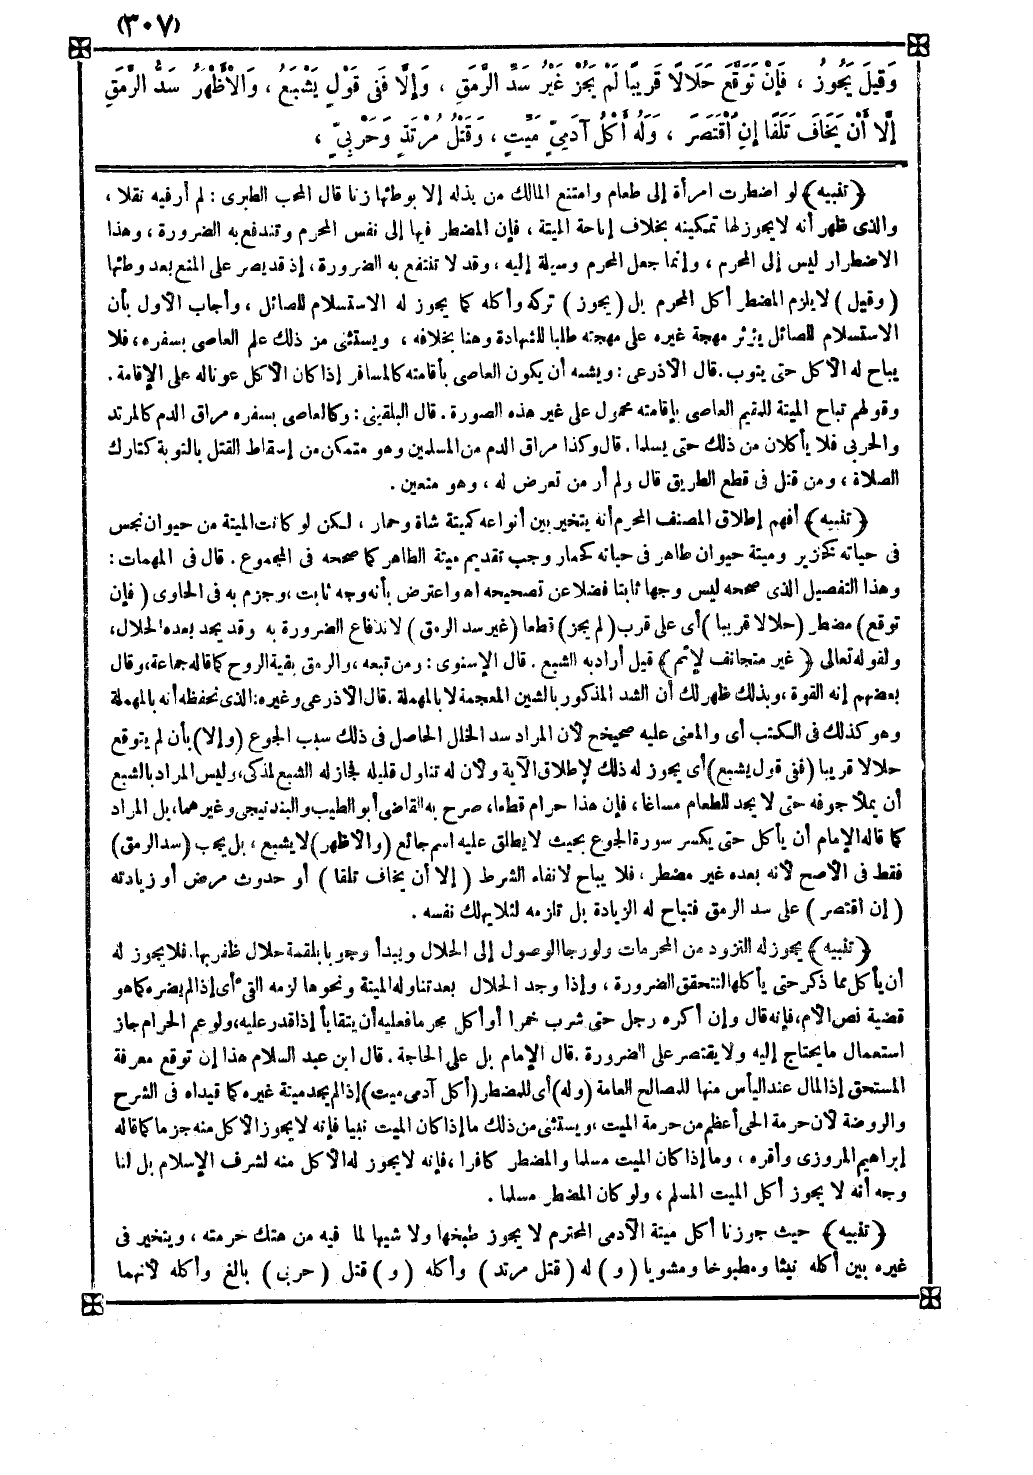 (٣٠٧)
وَقِيلَ يَجُوزُ ، فَإِنْ تَوَقَّعَ حَلَالًا قَرِيبًا لَمْ يَجُزْ غَيْرُ سَدِّ الرَّمَقِ ، وَإِلَّا فَفِي قَوْلٍ يَشْبَعُ ، وَالْأَظْهَرُ سَدُّ الرَّمَقِ
إِلَّا أَنْ يَخَافَ تَلَفًا إِنِ اقْتَصَرَ ، وَلَهُ أَكْلُ آدَمِيٍّ مَيِّتٍ ، وَقَتْلُ مُرْتَدٍّ وَحَرْبِيٍّ ،
﴿ تنبيه ﴾ لو اضطرت امرأة إلى طعام وامتنع المالك من بذله إلا بوطئها زنا قال المحب الطبرى : لم أر فيه نقلا ،
والذى ظهر أنه لايجوز لها تمكينه بخلاف إباحة الميتة ، فإن المضطر فيها إلى نفس المحرم وتندفع به الضرورة ، وهذا
الاضطرار ليس إلى المحرم ، وإنما جعل المحرم وسيلة إليه ، وقد لا تنتفع به الضرورة ، إذ قد يصر على المنع بعد وطئها
( وقيل ) لايلزم المضطر أكل المحرم بل ( يجوز ) تركه وأكله كما يجوز له الاستسلام للصائل ، وأجاب الأول بأن
الاستسلام للصائل يؤثر مهجة غيره على مهجته طلبا للشهادة وهنا بخلافه ، ويستثنى من ذلك علم العاصى بسفره ، فلا
يباح له الأكل حتى يتوب . قال الأذرعى : ويشبه أن يكون العاصى بأقامته كالمسافر إذا كان الأكل عونا له على الإقامة .
وقولهم تباح الميتة للمقيم العاصى بإقامته محمول على غير هذه الصورة . قال البلقينى : وكالعاصى بسفره مراق الدم كالمرتد
والحربى فلا يأكلان من ذلك حتى يسلما . قال وكذا مراق الدم من المسلمين وهو متمكن من إسقاط القتل بالتوبة كتارك
الصلاة ، ومن قتل فى قطع الطريق قال ولم أر من تعرض له ، وهو متعين .
﴿ تنبيه ﴾ أفهم إطلاق المصنف المحرم أنه يتخير بين أنواعه كميتة شاة وحمار ، لكن لو كانت الميتة من حيوان نجس
فى حياته كخنزير وميتة حيوان طاهر فى حياته كحمار وجب تقديم ميتة الطاهر كما صححه فى المجموع . قال فى المهمات :
وهذا التفصيل الذى صححه ليس وجها ثابتا فضلا عن تصحيحه اه واعترض بأنه وجه ثابت ، وجزم به فى الحاوى ( فإن
توقع ) مضطر ( حلالا قريبا ) أى على قرب ( لم يجز ) قطعا ( غير سد الرمق ) لاندفاع الضرورة به وقد يجد بعده الحلال ،
ولقوله تعالى ﴿ غير متجانف لإثم ﴾ قيل أراد به الشبع . قال الإسنوى : ومن تبعه ، والرمق بقية الروح كما قاله جماعة ، وقال
بعضهم إنه القوة ، وبذلك ظهر لك أن الشد المذكور بالشين المعجمة لا بالمهملة . قال الأذرعى وغيره : الذى نحفظه أنه بالمهملة
وهو كذلك فى الكتب أى والمعنى عليه صحيح لأن المراد سد الخلل الحاصل فى ذلك سبب الجوع ( وإلا ) بأن لم يتوقع
حلالا قريبا ( ففى قول يشبع ) أى يجوز له ذلك لإطلاق الآية ولأن له تناول قليله فجاز له الشبع لمذكى ، وليس المراد بالشبع
أن يملأ جوفه حتى لا يجد للطعام مساغا ، فإن هذا حرام قطعا ، صرح به القاضى أبو الطيب والبندنيجى وغيرهما ، بل المراد
كما قاله الإمام أن يأكل حتى يكسر سورة الجوع بحيث لا يطلق عليه اسم جائع ( والأظهر ) لايشبع ، بل يجب ( سد الرمق )
فقط فى الأصح لأنه بعده غير مضطر ، فلا يباح لانتفاء الشرط ( إلا أن يخاف تلفا ) أو حدوث مرض أو زيادته
( إن اقتصر ) على سد الرمق فتباح له الزيادة بل تلزمه لئلا يهلك نفسه .
﴿ تنبيه ﴾ يجوز له التزود من المحرمات ولو رجا الوصول إلى الحلال ويبدأ وجوبا بلقمة حلال ظفر بها . فلا يجوز له
أن يأكل مما ذكر حتى يأكلها لتتحقق الضرورة ، وإذا وجد الحلال بعد تناوله الميتة ونحوها لزمه القىء أى إذا لم يضره كما هو
قضية نص الأم ، فإنه قال وإن أكره رجل حتى شرب خمرا أو أكل محرما فعليه أن يتقايأ إذا قدر عليه ، ولو عم الحرام جاز
استعمال ما يحتاج إليه ولا يقتصر على الضرورة . قال الإمام بل على الحاجة . قال ابن عبد السلام هذا إن توقع معرفة
المستحق إذ المال عند اليأس منها للمصالح العامة ( وله ) أى للمضطر ( أكل آدمى ميت ) إذا لم يجد ميتة غيره كما قيداه فى الشرح
والروضة لأن حرمة الحى أعظم من حرمة الميت ، ويستثنى من ذلك ما إذا كان الميت نبيا فإنه لا يجوز الأكل منه جزما كما قاله
إبراهيم المروزى وأقره ، وما إذا كان الميت مسلما والمضطر كافرا ، فإنه لايجوز له الأكل منه لشرف الإسلام بل لنا
وجه أنه لا يجوز أكل الميت المسلم ، ولو كان المضطر مسلما .
﴿ تنبيه ﴾ حيث جوزنا أكل ميتة الآدمى المحترم لا يجوز طبخها ولا شيها لما فيه من هتك حرمته ، ويتخير فى
غيره بين أكله نيئا ومطبوخا ومشويا ( و ) له ( قتل مرتد ) وأكله ( و ) قتل ( حربى ) بالغ وأكله لأنهما